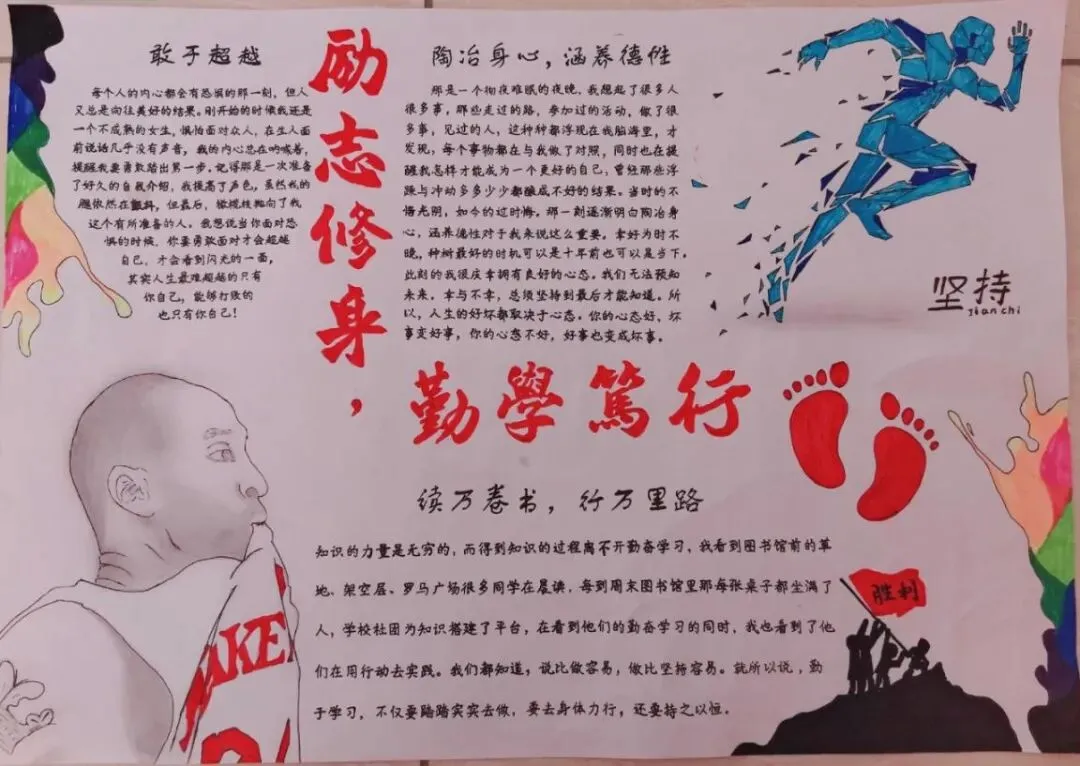 敢于超越
每个人的内心都会有恐惧的那一刻,但人
又总是向往美好的结果。刚开始的时候我还是
一个不成熟的女生,惧怕面对众人,在生人面
前说话几乎没有声音,我的内心总在呐喊着,
提醒我要勇敢踏出第一步。记得那是一次准备
了好久的自我介绍,我提高了声色,虽然我的
腿依然在颤抖,但最后,橄榄枝抛向了我
这个有所准备的人。我想说当你面对恐
惧的时候,你要勇敢面对才会超越
自己,才会看到闪光的一面,
其实人生最难超越的只有
你自己,能够打败的
也只有你自己!
励志修身,
陶冶身心,涵养德性
那是一个彻夜难眠的夜晚,我想起了很多人
很多事,那些走过的路,参加过的活动,做了很
多事,见过的人,这种种都浮现在我脑海里,才
发现,每个事物都在与我做了对照,同时也在提
醒我怎样才能成为一个更好的自己,曾经那些浮
躁与冲动多多少少都酿成不好的结果。当时的不
惜光阴,如今的过时悔。那一刻逐渐明白陶冶身
心,涵养德性对于我来说这么重要。幸好为时不
晚,种树最好的时机可以是十年前也可以是当下。
此刻的我很庆幸拥有良好的心态。我们无法预知
未来。幸与不幸,总须坚持到最后才能知道。所
以,人生的好坏都取决于心态。你的心态好,坏
事变好事,你的心态不好,好事也变成坏事。
坚持
Jian chi
勤學篤行
续万卷书,行万里路
知识的力量是无穷的,而得到知识的过程离不开勤奋学习,我看到图书馆前的草
地、架空层、罗马广场很多同学在晨读,每到周末图书馆里那每张桌子都坐满了
人,学校社团为知识搭建了平台,在看到他们的勤奋学习的同时,我也看到了他
们在用行动去实践。我们都知道,说比做容易,做比坚持容易。就所以说,勤
于学习,不仅要踏踏实实去做,要去身体力行,还要持之以恒。
胜利
AKE